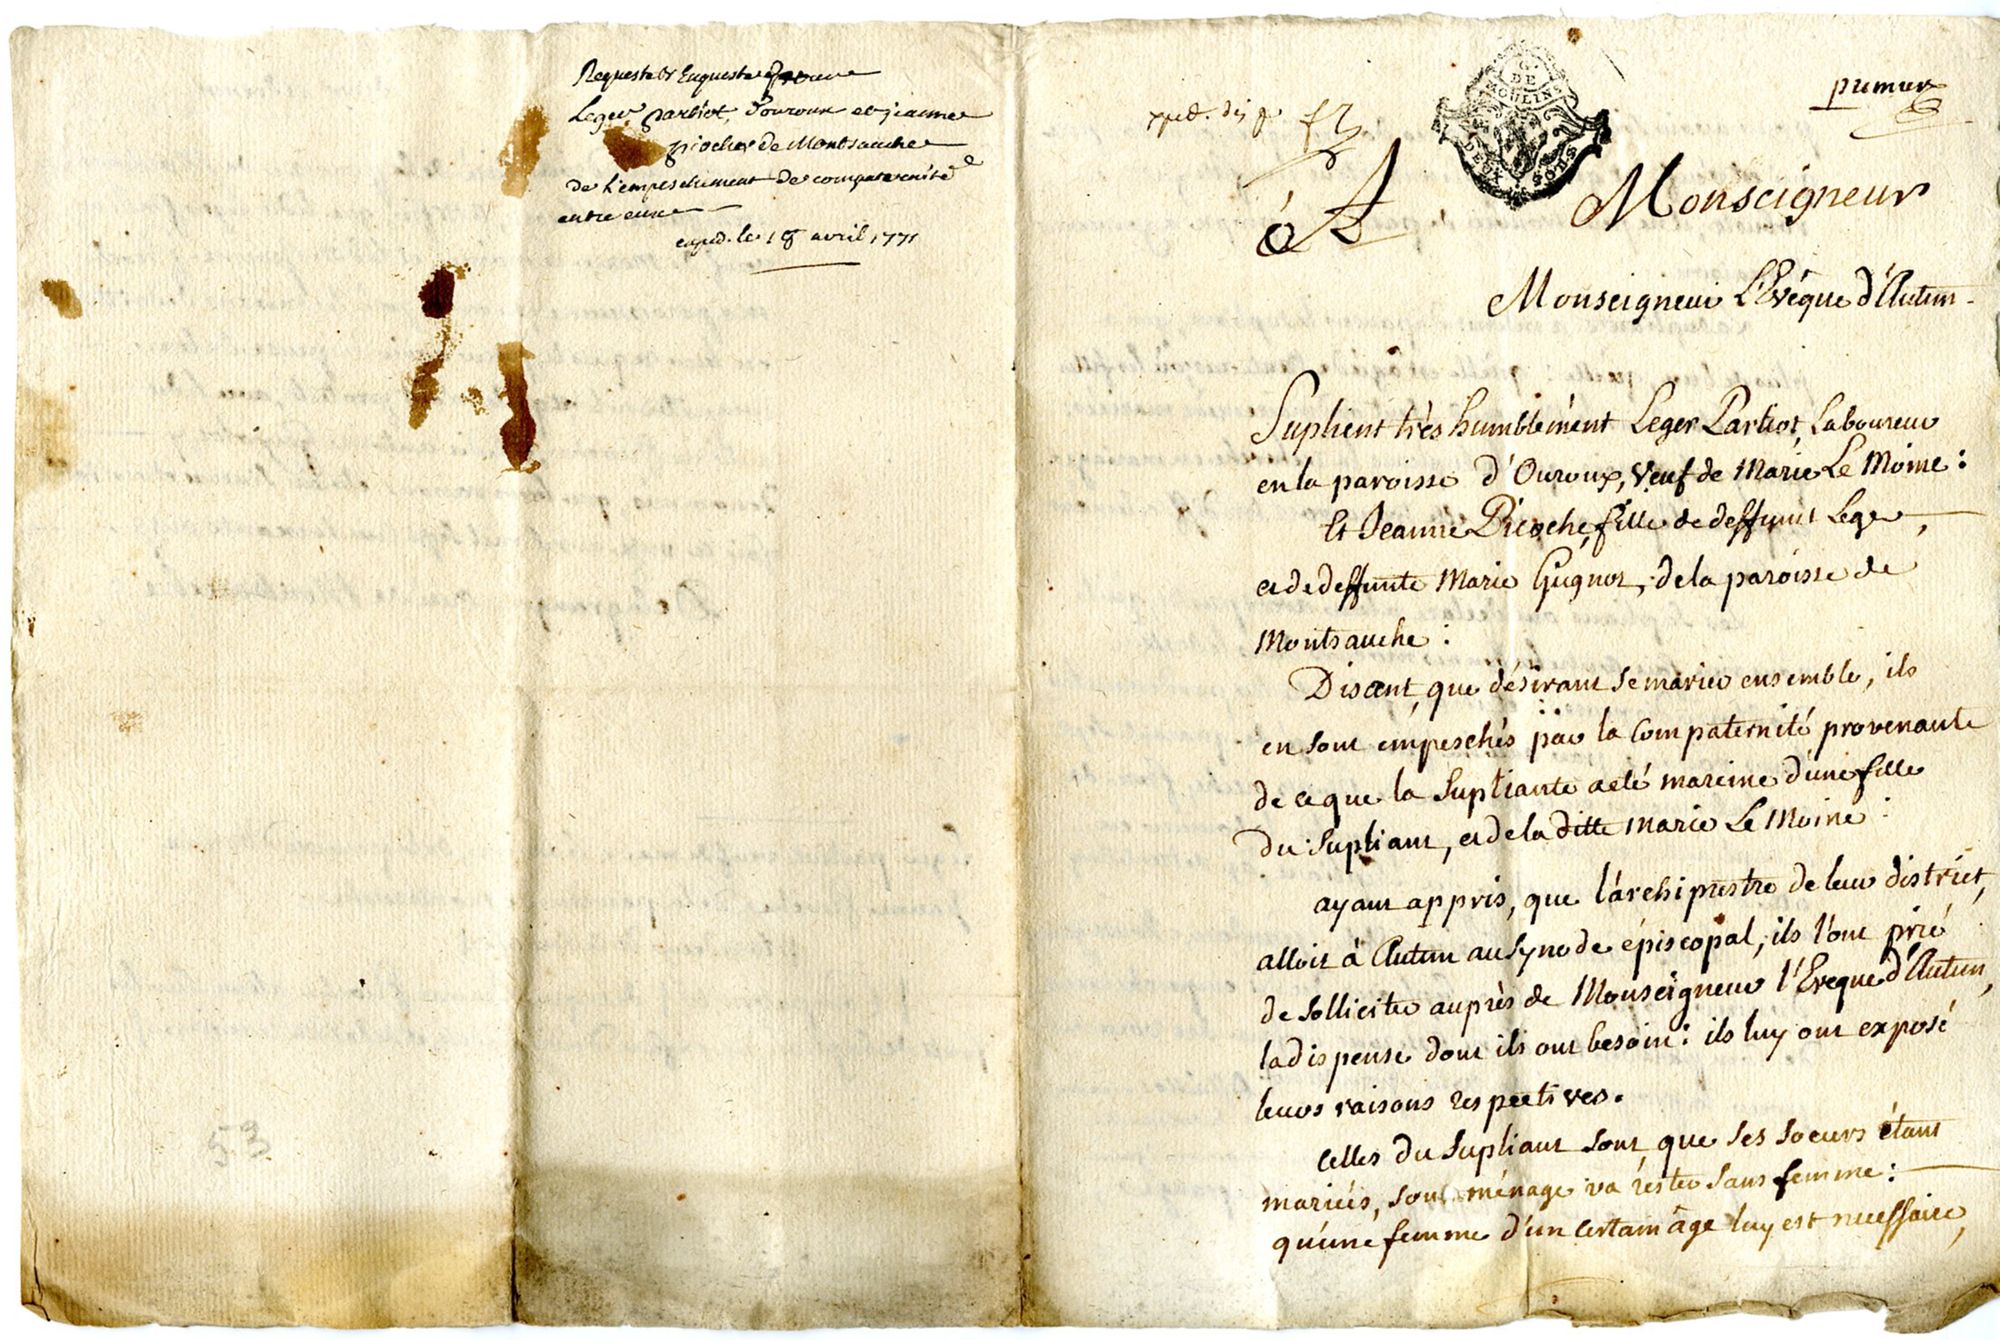 Requeste et Enqueste
Leger partiot, d'ouroux et jeanne
pioche de Montsauche
de l'empeschement de compaternité
entre eux
exped. le 18 avril 1771
53
G. DE MOULINS
DEUX SOUS
premier
A
Monseigneur
Monseigneur L'Evêque d'Autun
Suplient très humblement Leger Partiot, Laboureur
en la paroisse d'Ouroux, Veuf de Marie Le Moine :
Et Jeanne Pioche, fille de deffunt Leger,
et de deffunte Marie Gugnot, de la paroisse de
Montsauche :
Disent, que désirant se marier ensemble, ils
en sont empeschés par la compaternité provenante
de ce que la Supliante a eté mareine d'une fille
du Supliant, et de la ditte Marie Le Moine :
ayant appris, que l'archiprestre de leur district,
alloit à Autun au Synode épiscopal, ils l'ont prié
de solliciter auprès de Monseigneur l'Eveque d'Autun,
la dispense dont ils ont besoin : ils luy ont exposé
leurs raisons respectives.
Celles du Supliant sont que ses soeurs étant
mariées, son ménage va rester sans femme :
qu'une femme d'un certain âge luy est necessaire,